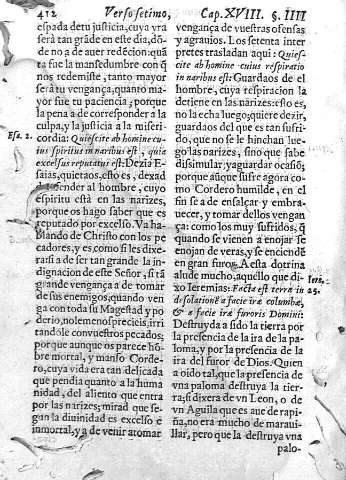 412 Verso setimo, Cap. XVIII. §. IIII
espada de tu justicia, cuya yra
será tan grãde en este dia, dõ-
de no á de auer redẽcion: quã
ta fue la mansedumbre con q̃
nos redemiste, tanto mayor
será tu vengança, quanto ma-
yor fue tu paciencia; porque
la pena à de corresponder a la
culpa, y la justicia a la miseri
cordia: Quiescite ab homine cu-
ius spiritus in naribus est, quia
excelsus reputatus est: Dezia E-
saias, quietaos, esto es, dexad
der al hombre, cuyo
espiritu está en las narizes,
porque os hago saber que es
reputado por excelso. Va ha-
blando de Christo con los pe
cadores, y es, como si les dixe-
ra: si a de ser tan grande la in-
dignacion de este Señor, si tã
grande vengança a de tomar
de sus enemigos, quando ven
ga con toda su Magestad y po
derio, no le menosprecieis, irri
tandole con vuestros pecados;
porque aunque os parece hõ-
bre mortal, y manso Corde-
ro, cuya vida era tan delicada
que pendia quanto a la huma
nidad, del aliento que entra
por las narizes; mirad que se-
gun la diuinidad es excelso e
inmortal, y a de venir a tomar
Esa. 2.
vengança de vuestras ofensas
y agrauios. Los setenta inter
pretes trasladan aqui: Quies-
cite ab homine cuius respiratio
in naribus est: Guardaos de el
hombre, cuya respiracion la
detiene en las narizes: esto es,
no la echa luego; quiere dezir,
guardaos del que es tan sufri-
do, que no se le hinchan lue-
go las narizes, sino que sabe
dissimular, y aguardar ocasiõ;
porque aũque sufre agora co-
mo Cordero humilde, en el
fin se a de ensalçar y embra-
uecer, y tomar dellos vengan
ça: como los muy sufridos, q̃
quando se vienen a enojar se
enojan de veras, y se enciendẽ
en gran furor. A esta dotrina
alude mucho, aquello que di-
xo Ieremias: Facta est terra in
desolationẽ a facie iræ columbæ,
& a facie iræ furoris Domini:
Destruyda a sido la tierra por
la presencia de la ira de la pa-
loma, y por la presencia de la
ira del furor de Dios. Quien
a oido tal, que la presencia de
vna paloma destruya la tier-
ra; si dixera de vn Leon, o de
vn Aguila que es aue de rapi-
ña, no era mucho de maraui-
llar, pero que la destruya vna
palo-
Iere.
25.